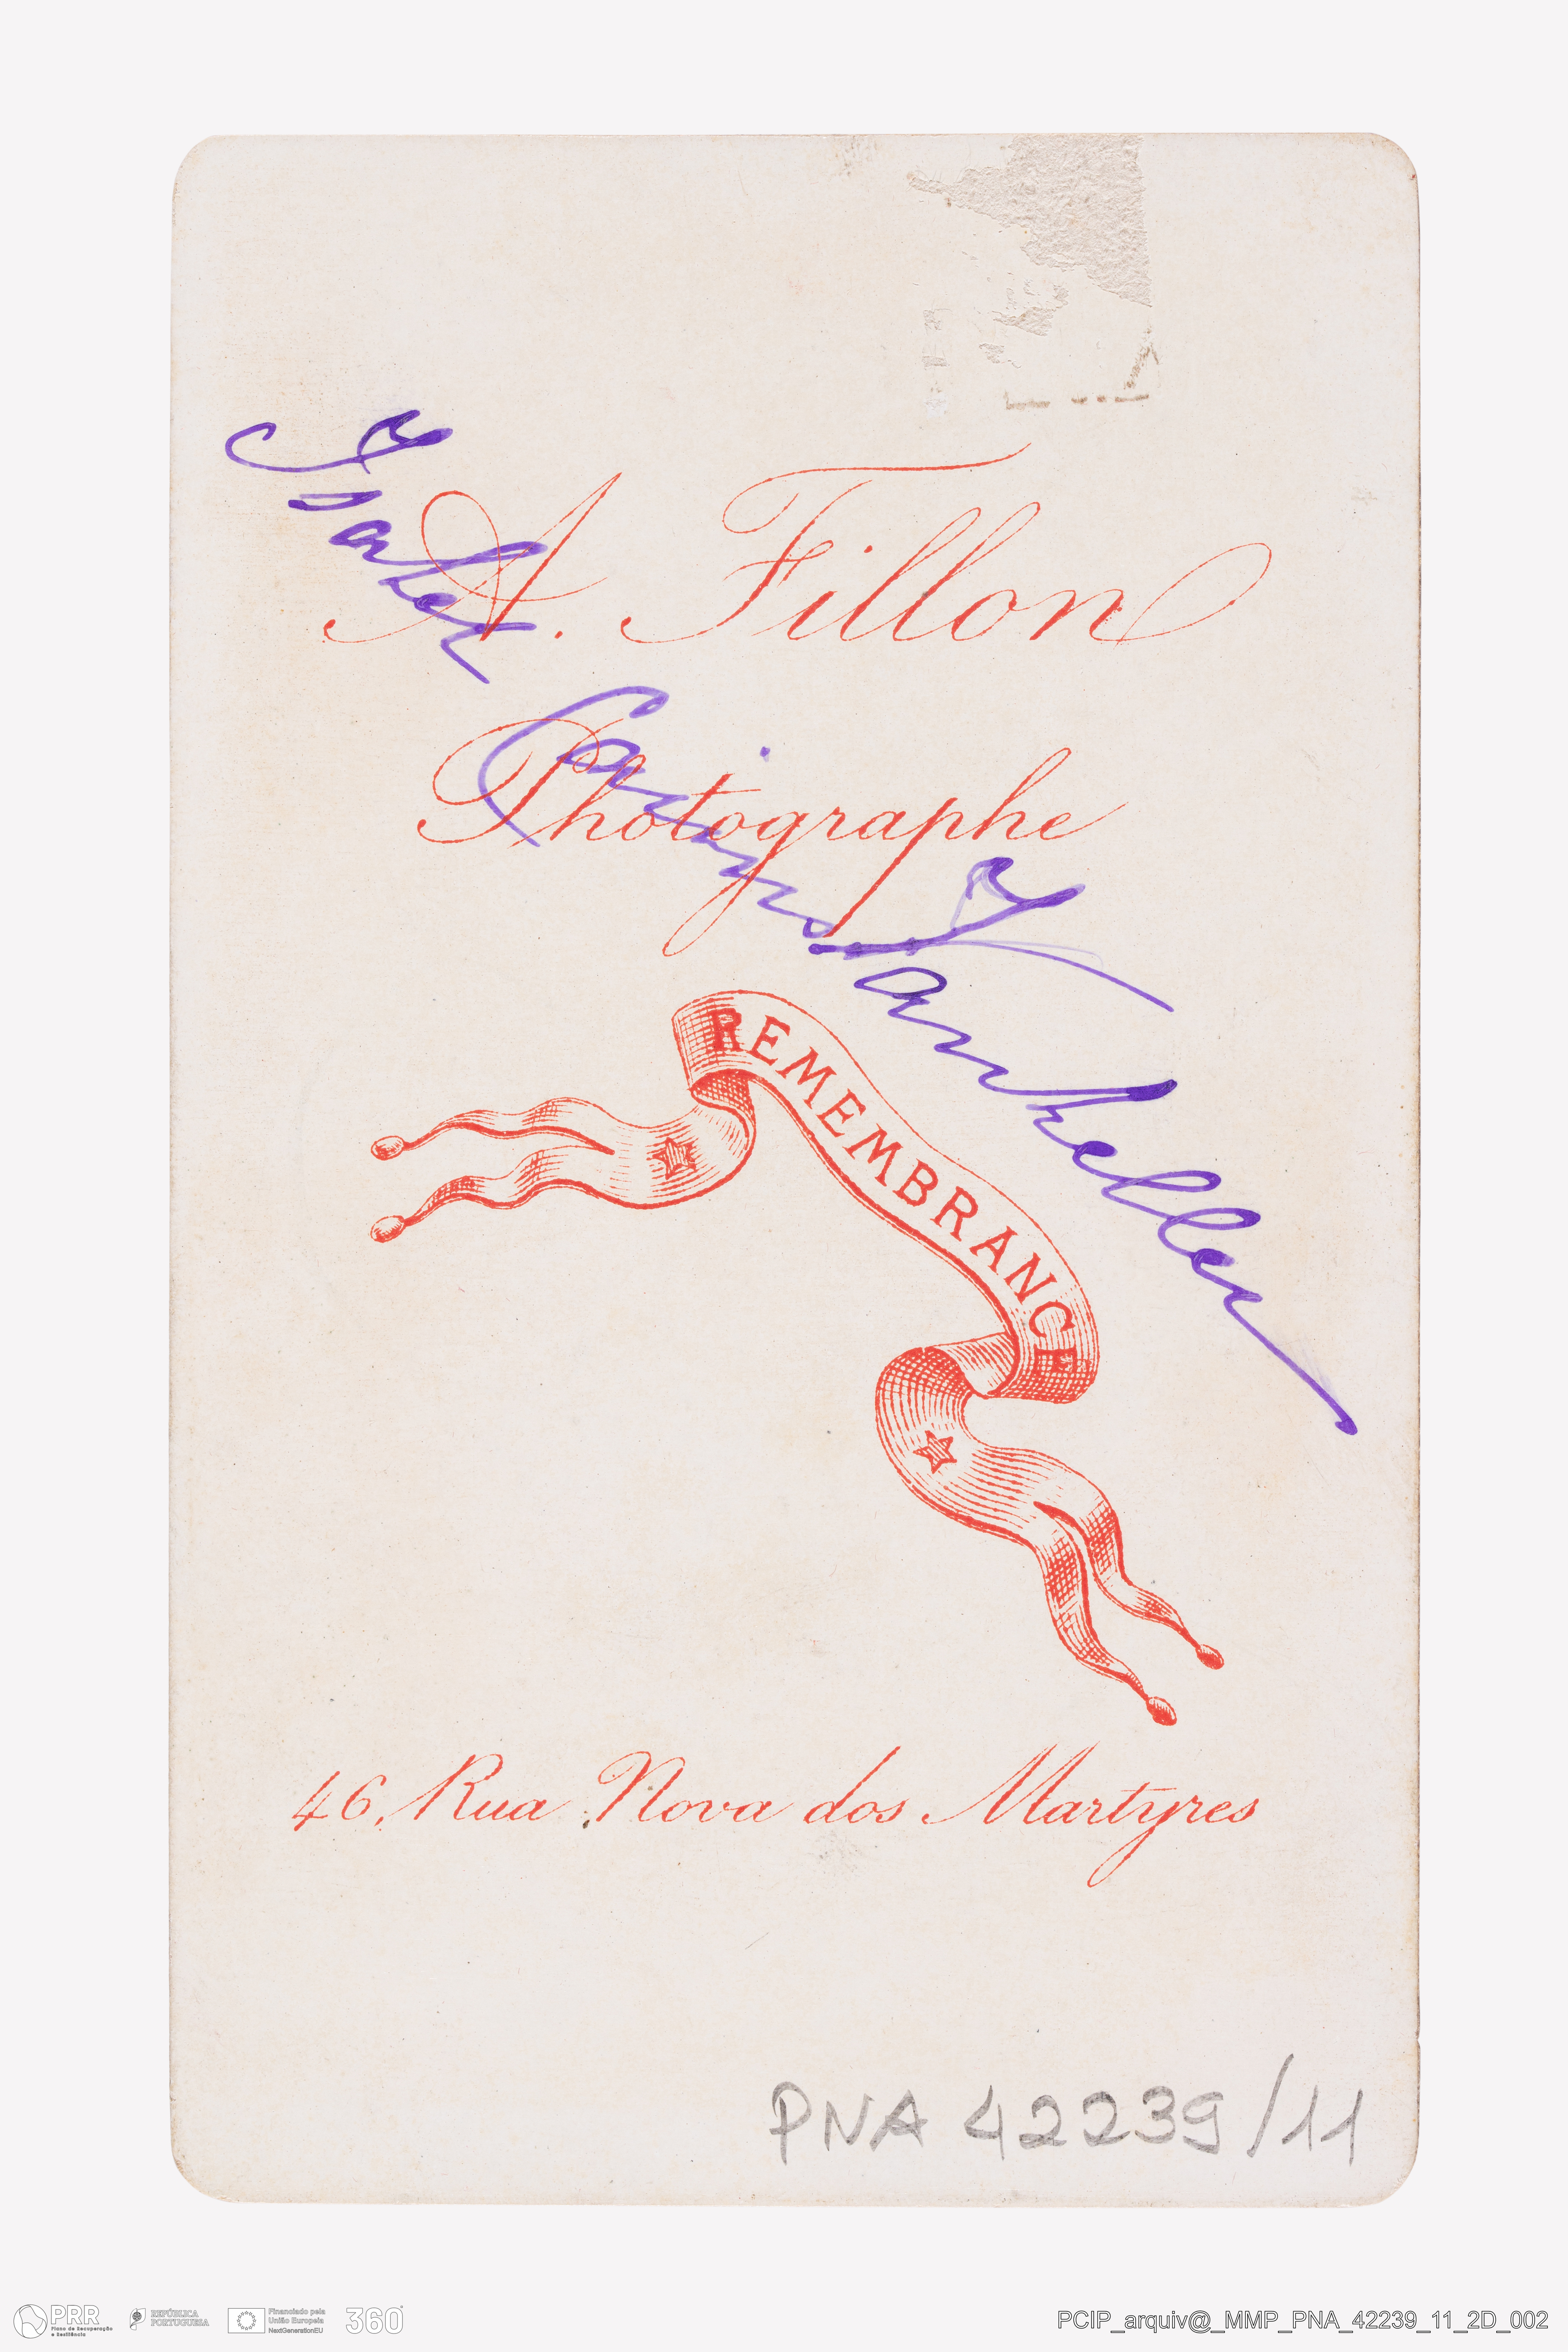 A. Fillon
Photographe
REMEMBRANCE
46, Rua Nova dos Martyres
PNA 42239/11
PRR
Plano de Recuperação
e Resiliência
REPÚBLICA
PORTUGUESA
Financiado pela
União Europeia
NextGenerationEU
360°
PCIP_arquiv@_MMP_PNA_42239_11_2D_002